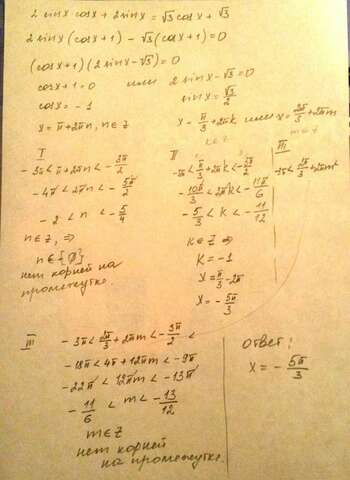 2 sinx cosx + 2 sinx = √3 cosx + √3
2 sinx (cosx+1) - √3 (cosx+1) = 0
(cosx+1)(2 sinx-√3) = 0
cosx+1=0 или 2 sinx-√3=0
cosx = -1 sinx = √3/2
x = π+2πn, n∈Z x = π/3 + 2πk или x = 2π/3 + 2πm
k∈Z m∈Z
I
-3π < π+2πn < -3π/2
-4π < 2πn < -5π/2
-2 < n < -5/4
n∈Z, ⇒
n∈{Ø}
нет корней на
промежутке.
II
-3π < π/3 + 2πk < -3π/2
-10π/3 < 2πk < -11π/6
-5/3 < k < -11/12
k∈Z ⇒
k = -1
x = π/3 - 2π
x = -5π/3
III
-3π < 2π/3 + 2πm <
III
-3π < 2π/3 + 2πm < -3π/2
-18π < 4π + 12πm < -9π
-22π < 12πm < -13π
-11/6 < m < -13/12
m∈Z
нет корней
на промежутке.
ответ:
x = -5π/3